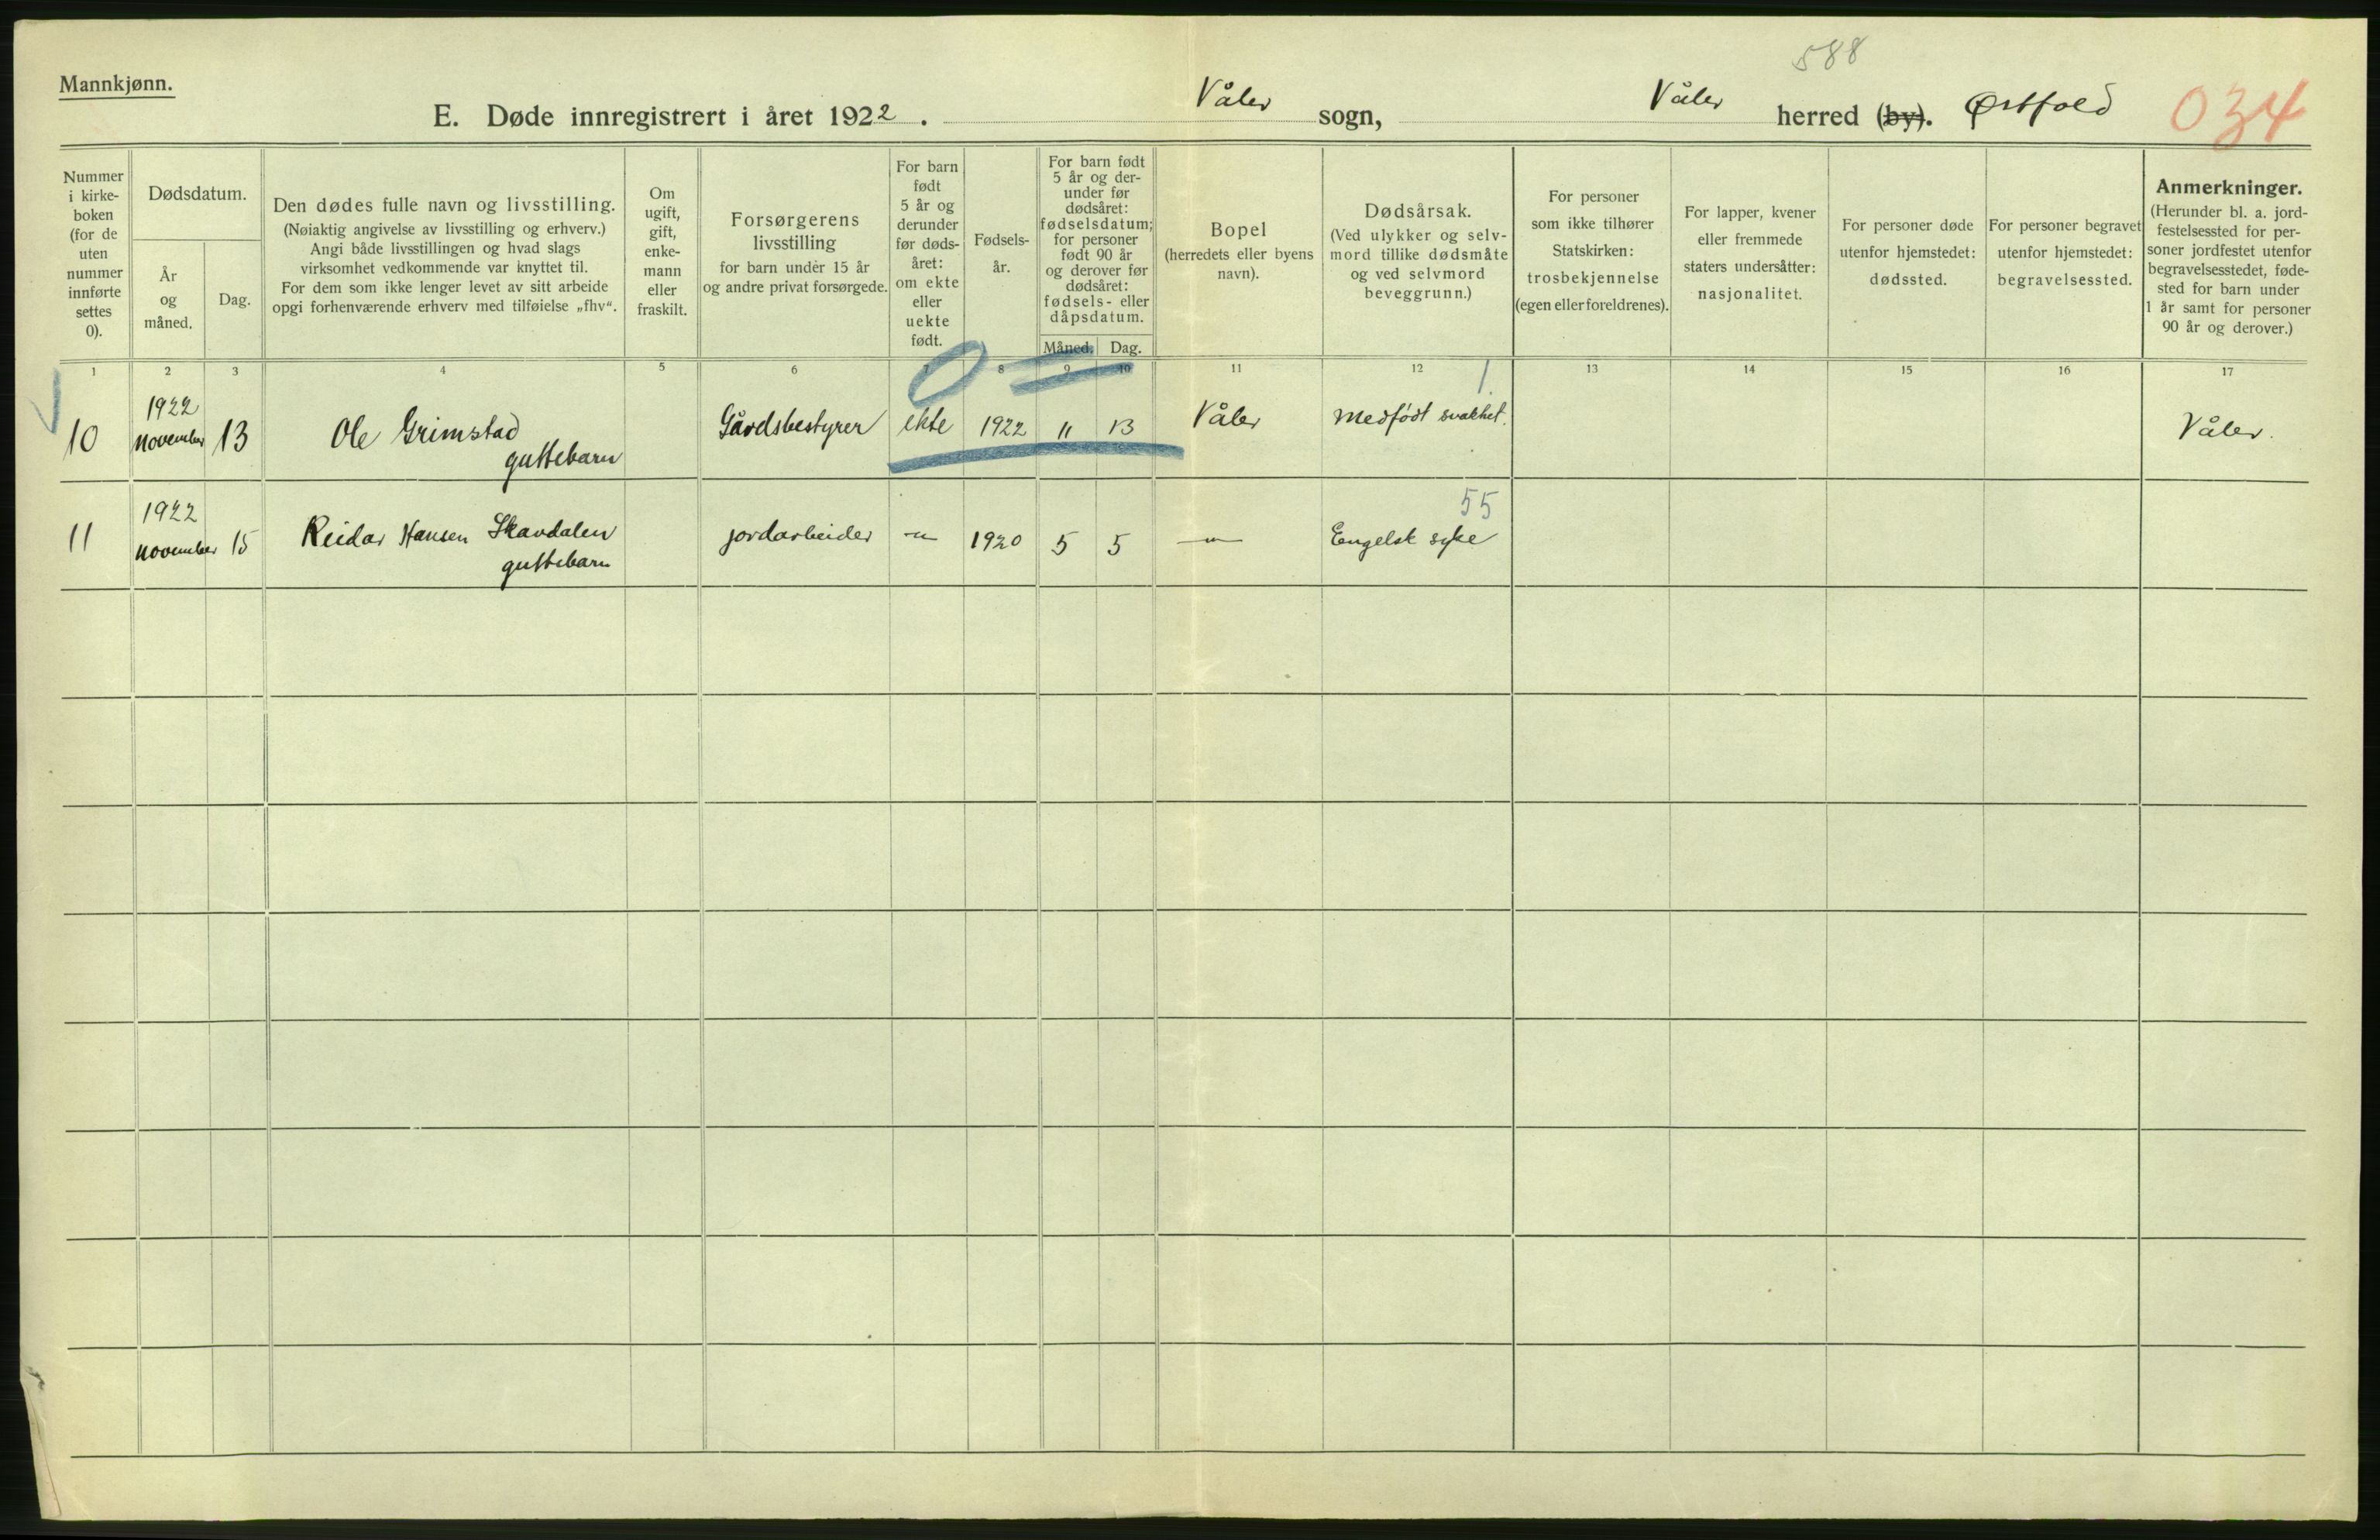 588
Mannkjønn.
E. Døde innregistrert i året 1922. Våler sogn, Våler herred (by). Østfold 034
Nummer
i kirke-
boken
(for de
uten
nummer
innførte
settes
0).
Dødsdatum.
År
og
måned.
Dag.
Den dødes fulle navn og livsstilling.
(Nøiaktig angivelse av livsstilling og erhverv.)
Angi både livsstillingen og hvad slags
virksomhet vedkommende var knyttet til.
For dem som ikke lenger levet av sitt arbeide
opgi forhenværende erhverv med tilføielse „fhv“.
Om
ugift,
gift,
enke-
mann
eller
fraskilt.
Forsørgerens
livsstilling
for barn under 15 år
og andre privat forsørgede.
For barn
født
5 år og
derunder
før døds-
året:
om ekte
eller
uekte
født.
Fødsels-
år.
For barn født
5 år og der-
under før
dødsåret:
fødselsdatum;
for personer
født 90 år
og derover før
dødsåret:
fødsels- eller
dåpsdatum.
Måned. Dag.
Bopel
(herredets eller byens
navn).
Dødsårsak.
(Ved ulykker og selv-
mord tillike dødsmåte
og ved selvmord
beveggrunn.)
For personer
som ikke tilhører
Statskirken:
trosbekjennelse
(egen eller foreldrenes).
For lapper, kvener
eller fremmede
staters undersåtter:
nasjonalitet.
For personer døde
utenfor hjemstedet:
dødssted.
For personer begravet
utenfor hjemstedet:
begravelsessted.
Anmerkninger.
(Herunder bl. a. jord-
festelsessted for per-
soner jordfestet utenfor
begravelsesstedet, føde-
sted for barn under
1 år samt for personer
90 år og derover.)
1 2 3 4 5 6 7 8 9 10 11 12 13 14 15 16 17
0 1
1922
10 november 13 Ole Grimstad Gårdsbestyrer ekte 1922 11 13 Våler Medfødt svakhet. Våler.
guttebarn
1922 55
11 november 15 Reidar Hansen Skavdalen jordarbeider -"- 1920 5 5 -"- Engelsk syke
guttebarn